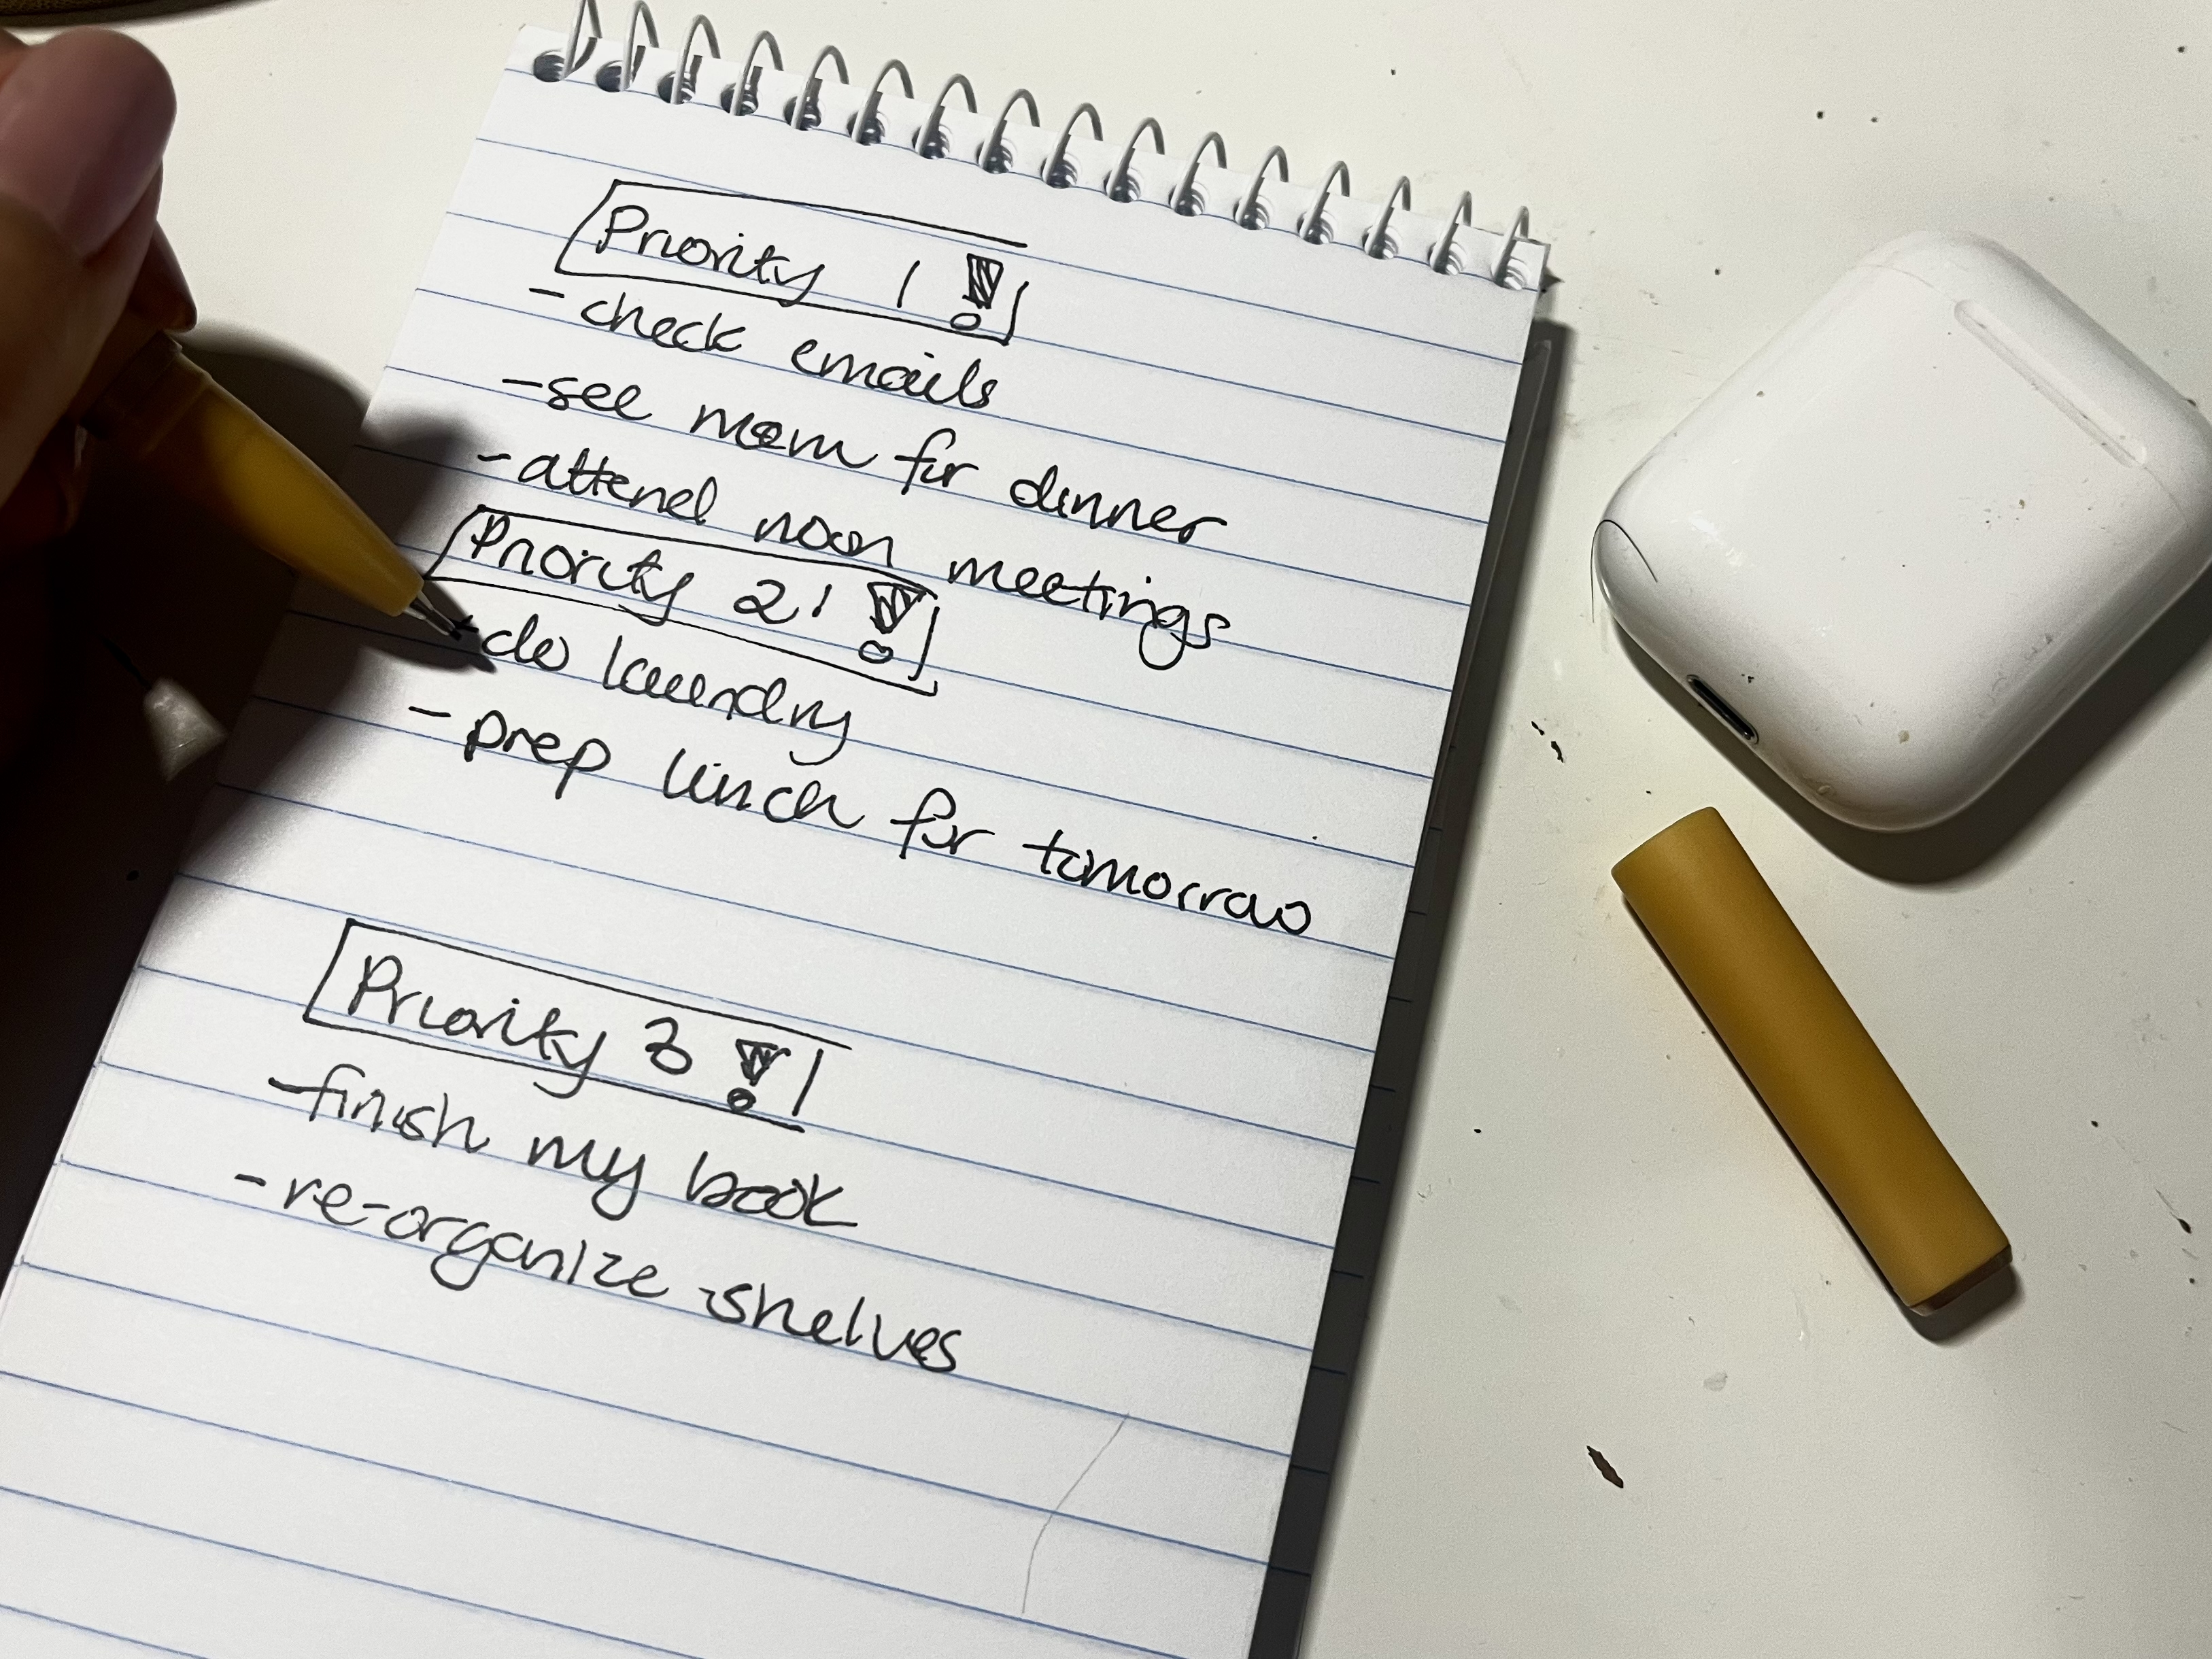 Priority 1 !
- check emails
- see mom for dinner
- attend noon meetings
Priority 2! !
- do laundry
- prep lunch for tomorrow
Priority 3 !
- finish my book
- re-organize shelves